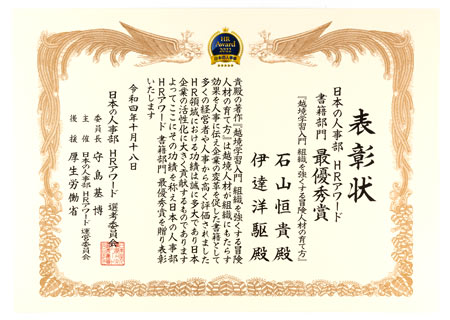 HR
Award
2022
日本の人事部
表彰状
日本の人事部 HRアワード
書籍部門 最優秀賞
『越境学習入門 組織を強くする冒険人材の育て方』
石山恒貴殿
伊達洋駆殿
貴殿の著作『越境学習入門 組織を強くする冒険
人材の育て方』は越境人材が組織にもたらす
効果を人事に伝え企業の変革を促した書籍として
多くの経営者や人事から高く評価されました
HR領域における功績は誠に多大であり日本
企業の活性化に大きく貢献するものであります
よってここにその功績を称え日本の人事部
HRアワード 書籍部門 最優秀賞を贈り表彰
いたします
令和四年十月十八日
日本の人事部 HRアワード 選考委員会
委員長 守島基博
主催 日本の人事部「HRアワード」運営委員会
後援 厚生労働省